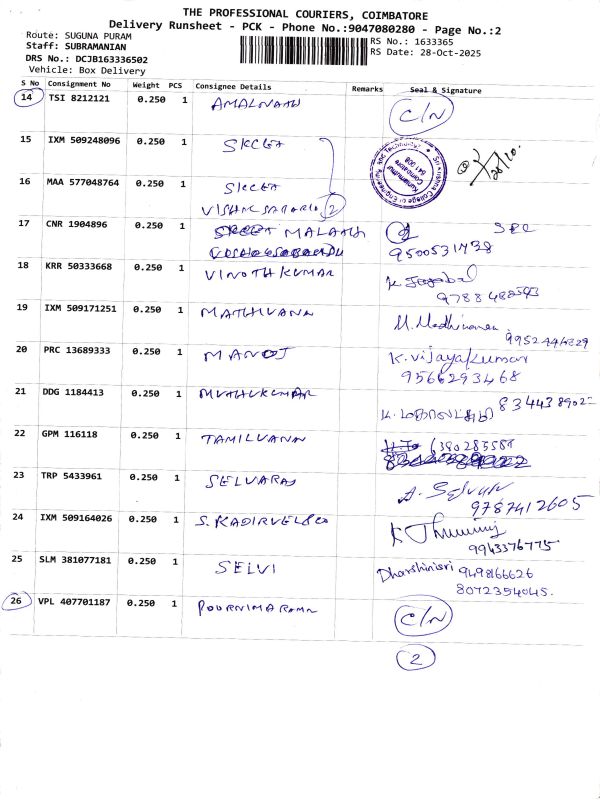 THE PROFESSIONAL COURIERS, COIMBATORE
Delivery Runsheet - PCK - Phone No.:9047080280 - Page No.:2
Route: SUGUNA PURAM
Staff: SUBRAMANIAN
DRS No.: DCJB163336502
Vehicle: Box Delivery
RS No.: 1633365
RS Date: 28-Oct-2025
S No Consignment No Weight PCS Consignee Details Remarks Seal & Signature
14 TSI 8212121 0.250 1 AMALNATH C/N
15 IXM 509248096 0.250 1 SKCET
16 MAA 577048764 0.250 1 SKCET
2
17 CNR 1904896 0.250 1 MALATH
9500531738
18 KRR 50333668 0.250 1 VINOTHKUMAR
19 IXM 509171251 0.250 1 MATHIVANA
20 PRC 13689333 0.250 1 MANOJ K. Vijayakumar
9566293468
21 DDG 1184413 0.250 1 MUTHUKUMAR
22 GPM 116118 0.250 1 TAMILVANAN
23 TRP 5433961 0.250 1 SELVARAJ A. Selvan
9787412605
24 IXM 509164026 0.250 1 S. KADIRVEL
9943376775
25 SLM 381077181 0.250 1 SELVI Dharshinisri 9498166626
8072354045.
26 VPL 407701187 0.250 1 POORNIMA C/N
2